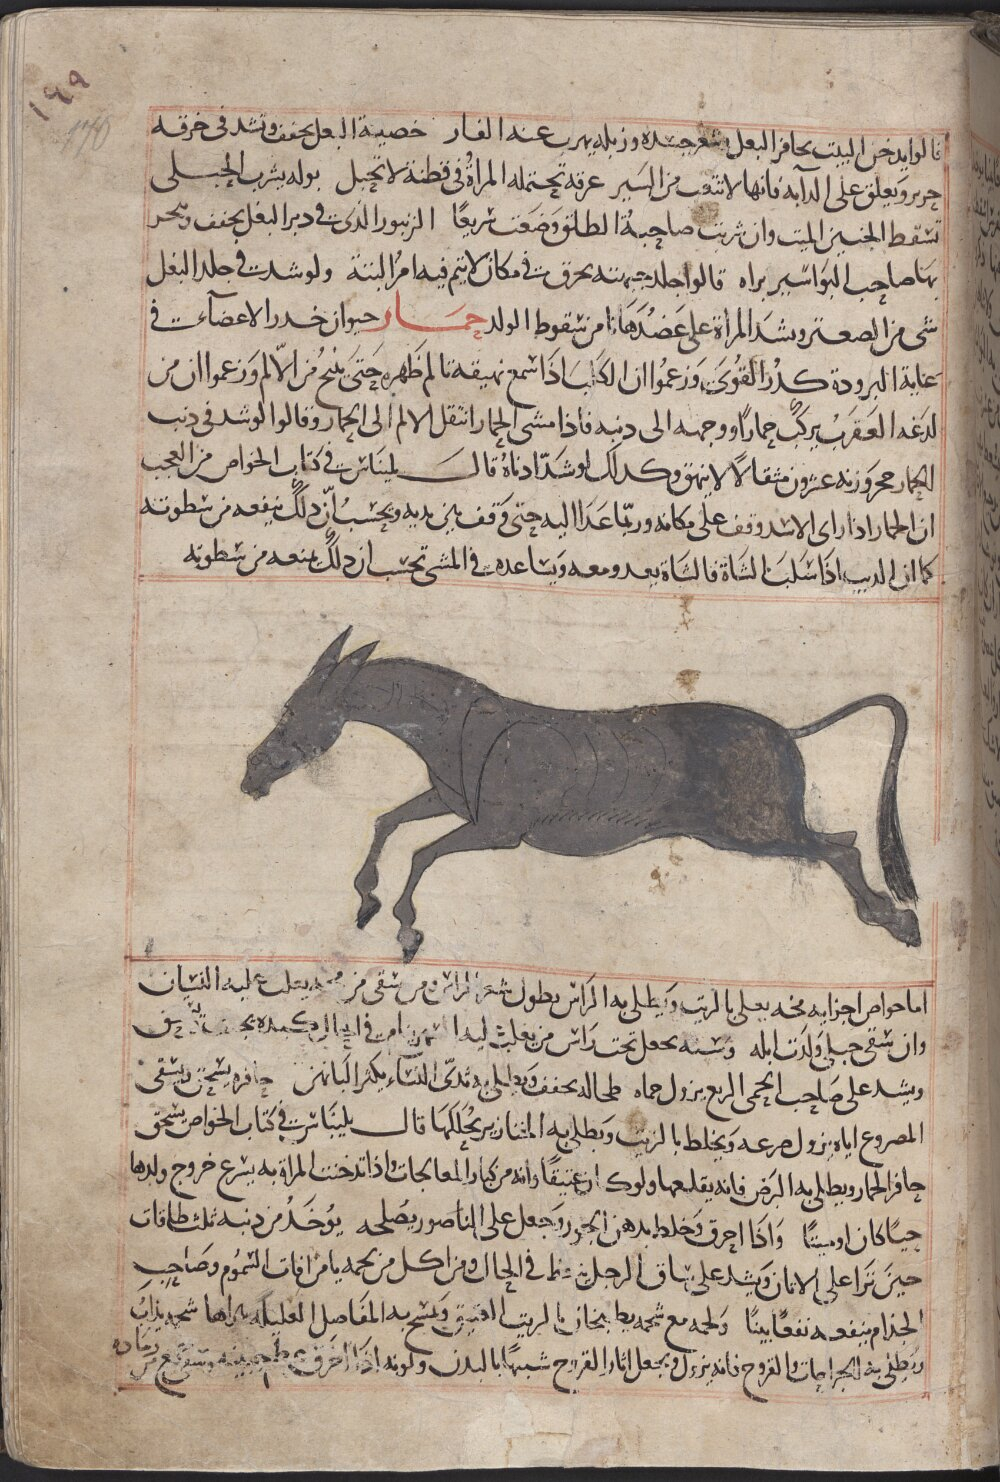 ١٤٩
170
قالوا يدخن البيت بحافر البعل وشعر جسده وزبله يهرب عنه الفار خصية البعل تجفف وتشد فى خرقه
حرير ويعلق على الدابه فانها لا تتعب من السير عرقه تحتمله المراة فى قطنة لا تحبل بوله يشرب الحبلى
تسقط الجنين الميت وان شربت صاحبة الطلق وضعت سريعا الزنبور الذى فى دبر البغل يجفف ويبخر
بها صاحب البواسير براه قالوا جلد جبهته يحرق فى مكان لا يتم فيه امر البتة ولو شدت فى جلد البغل
شى من الصعتر ويشد المراة على عضدها امن سقوط الولد حمار حيوان خدر الاعضاء فى
غاية البرودة كدر القوى وزعموا ان الكلب اذا سمع نهيقه تالم ظهره حتى ينبح من الالم وزعموا ان من
لدغه العقرب يركب حمارا ووجهه الى دنبه فاذا مشى الحمار انتقل الالم الى الحمار وقالوا لو شد فى ذنب
الحمار حجر وزنه عشرون مثقالا لا ينهق وكدلك لو شد اذناه قال بليناس فى كتاب الخواص من العجب
ان الحمار اذا راى الاسد وقف على مكانه وربما عدا اليه حتى وقف بين يديه ويحسب ان دلك ينفعه من سطوته
كما ان الديب اذا سلب الشاة فالشاة بعدو معه ويساعده فى المشى تحسب ان دلك يمنعه من سطوته
اما خواص اجزايه مخه يعلى بالزيت ويطلى به الراس يطول شعر الراس ومن سقى من مخه يغلب عليه النسيان
وان سقى حبلى ولدت ابله وسنه يجعل تحت راس من يغلب ليه فى الحال كبده يجفف
ويشد على صاحب الحمى الربع يزول حماه طحاله يجفف ويطلى به ثدى النساء يكثر البانهن حافره يسحق ويسقى
المصروع اياه يزول صرعه ويخلط بالزيت ويطلى به الخنازير يحللها قال بليناس فى كتاب الخواص يسحق
حافر الحمار ويطلى به البرص فانه يقلعها ولو كان عتيقا وانه من كبار المعالجات واذا تدخنت المراة به يسرع خروج ولدها
حيا كان او ميتا واذا احرق وخلط بدهن الجوز وجعل على الناصور يصلحه يوخذ من دنبه ثلث طاقات
حين نزا على الاتان ويشد على ساق الرجل فى الحال ومن اكل من لحمه يامن افات السموم وصاحب
الجذام ينفعه نفعا بينا ولحمه مع شحمه يطبخان بالزيت العتيق ويمسح به المفاصل العليلة براها شحمه يذاب
ويطلى به الجراحات والقروح فانه يزول ويجعل اثار القروح شبيها بالبدن ولونه اذا احرق
رماده